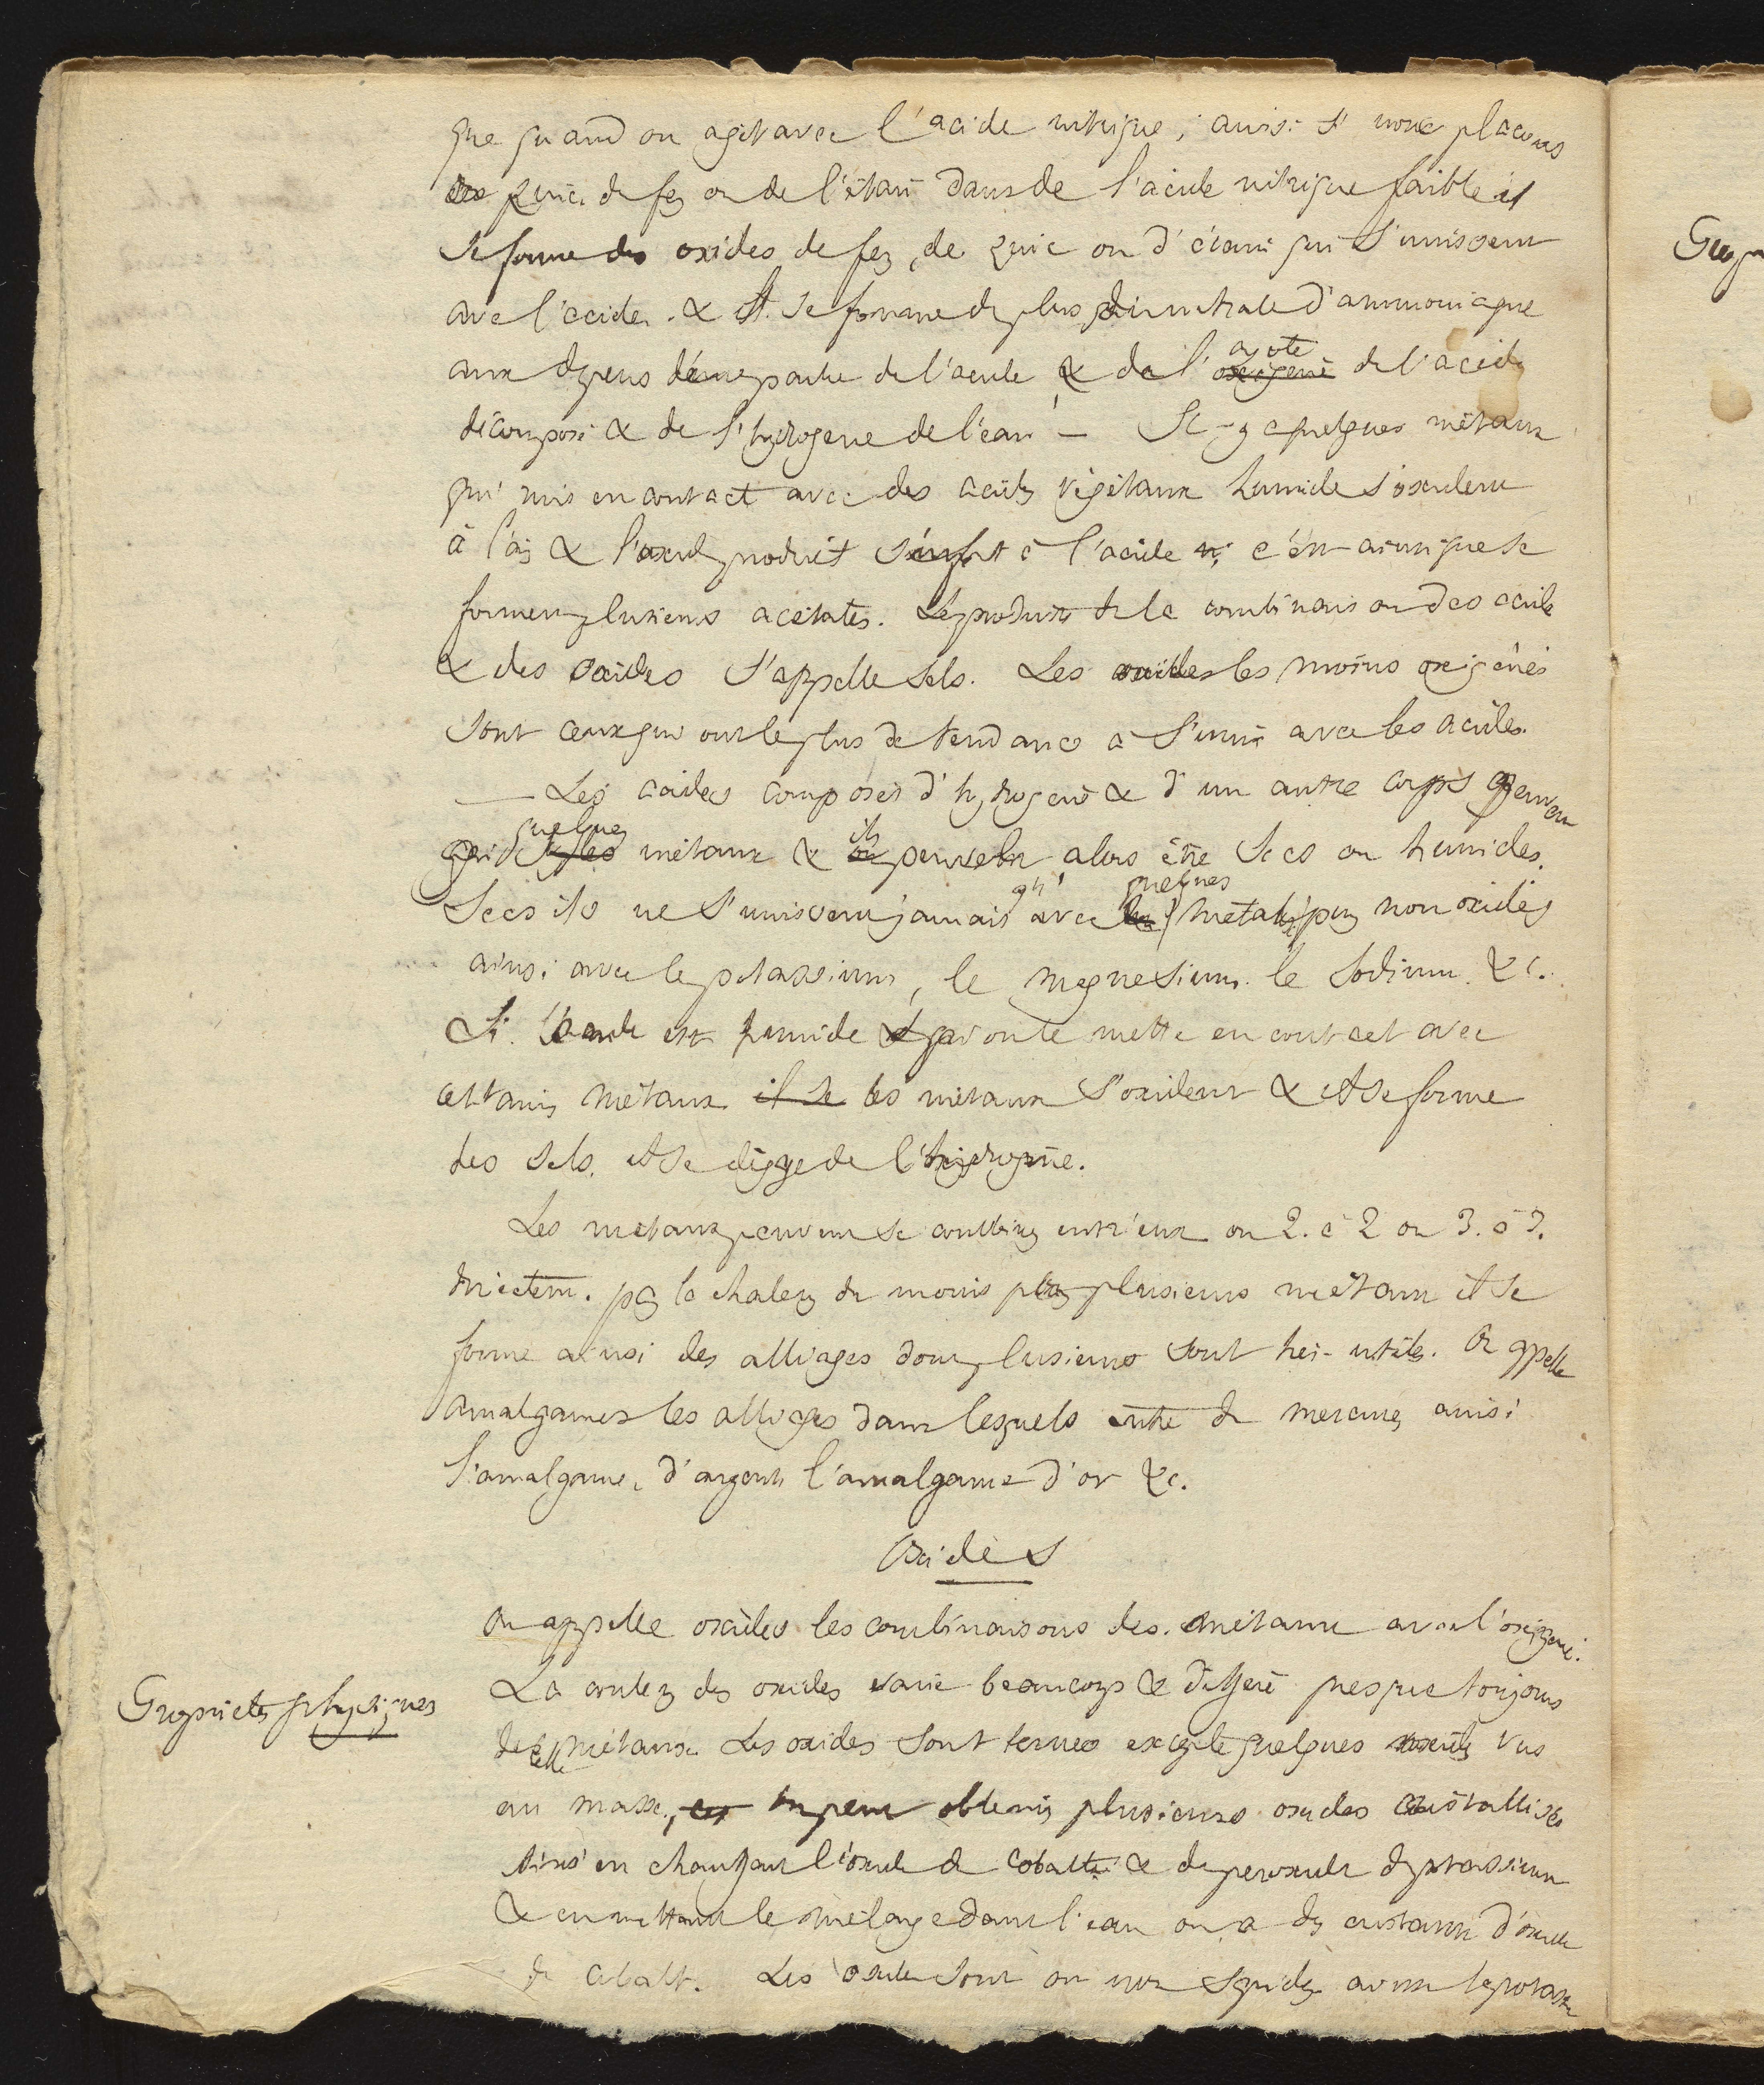 que quand on agit avec l'acide nitrique; ainsi si nous placons
du zinc du fer ou de l'étain dans de l'acide nitrique faible il
se forme des oxides de fer, de zinc ou d'étain qui s'unissent
avec l'acide. & il se forme de plus du nitrate d'ammoniaque
aux depens d'une partie de l'acide & de l' azote oxigene de l'acide
décomposé & de l'hydrogene de l'eau — Il y a quelques métaux
qui mis en contact avec des acides végétaux humide s'oxident
à l'air & l'oxide produit s'unit à l'acide c'est ainsi que se
forment plusieurs acétates. Les produits de la combinaison des acide
& des oxides s'appelle sels. Les oxides les moins oxigénés
sont ceux qui ont le plus de tendance a s'unir avec les acides.
— Les acides composés d'hydrogene & d'un autre corps peuvent
quelques métaux & ils peuvent alors être secs ou humides.
Secs ils ne s'unissent jamais qu' avec quelques métaux non oxidés
ainsi avec le potassium, le magnesium le sodium &c.
Si l'acide est humide & qu'on le mette en contact avec
certains métaux il se les métaux s'oxident & il se forme
des sels. il se dégage de l'hidrogène.
Les métaux peuvent se combiner entr'eux ou 2. à 2 ou 3. à 3.
directem. par la chaleur du moins plusieurs métaux il se
forme ainsi des alliages dont plusieurs sont très-utiles. On appelle
amalgames les alliages dans lesquels entre du mercure ainsi
l'amalgame d'argent l'amalgame d'or &c.
Oxides
On appelle oxides les combinaisons des métaux avec l'oxigene.
Propriétés physiques
La couleur des oxides varie beaucoup & differe presque toujours
de celle métaux. Les oxides sont ternes excepté quelques vus
en masse, on peut obtenir plusieurs oxides cristallisés
ainsi en chauffant l'oxide de cobalt & du peroxide de potassium
& en mettant le mélange dans l'eau on a des cristaux d'oxide
de cobalt. Les oxides sont ou non sapides la potasse